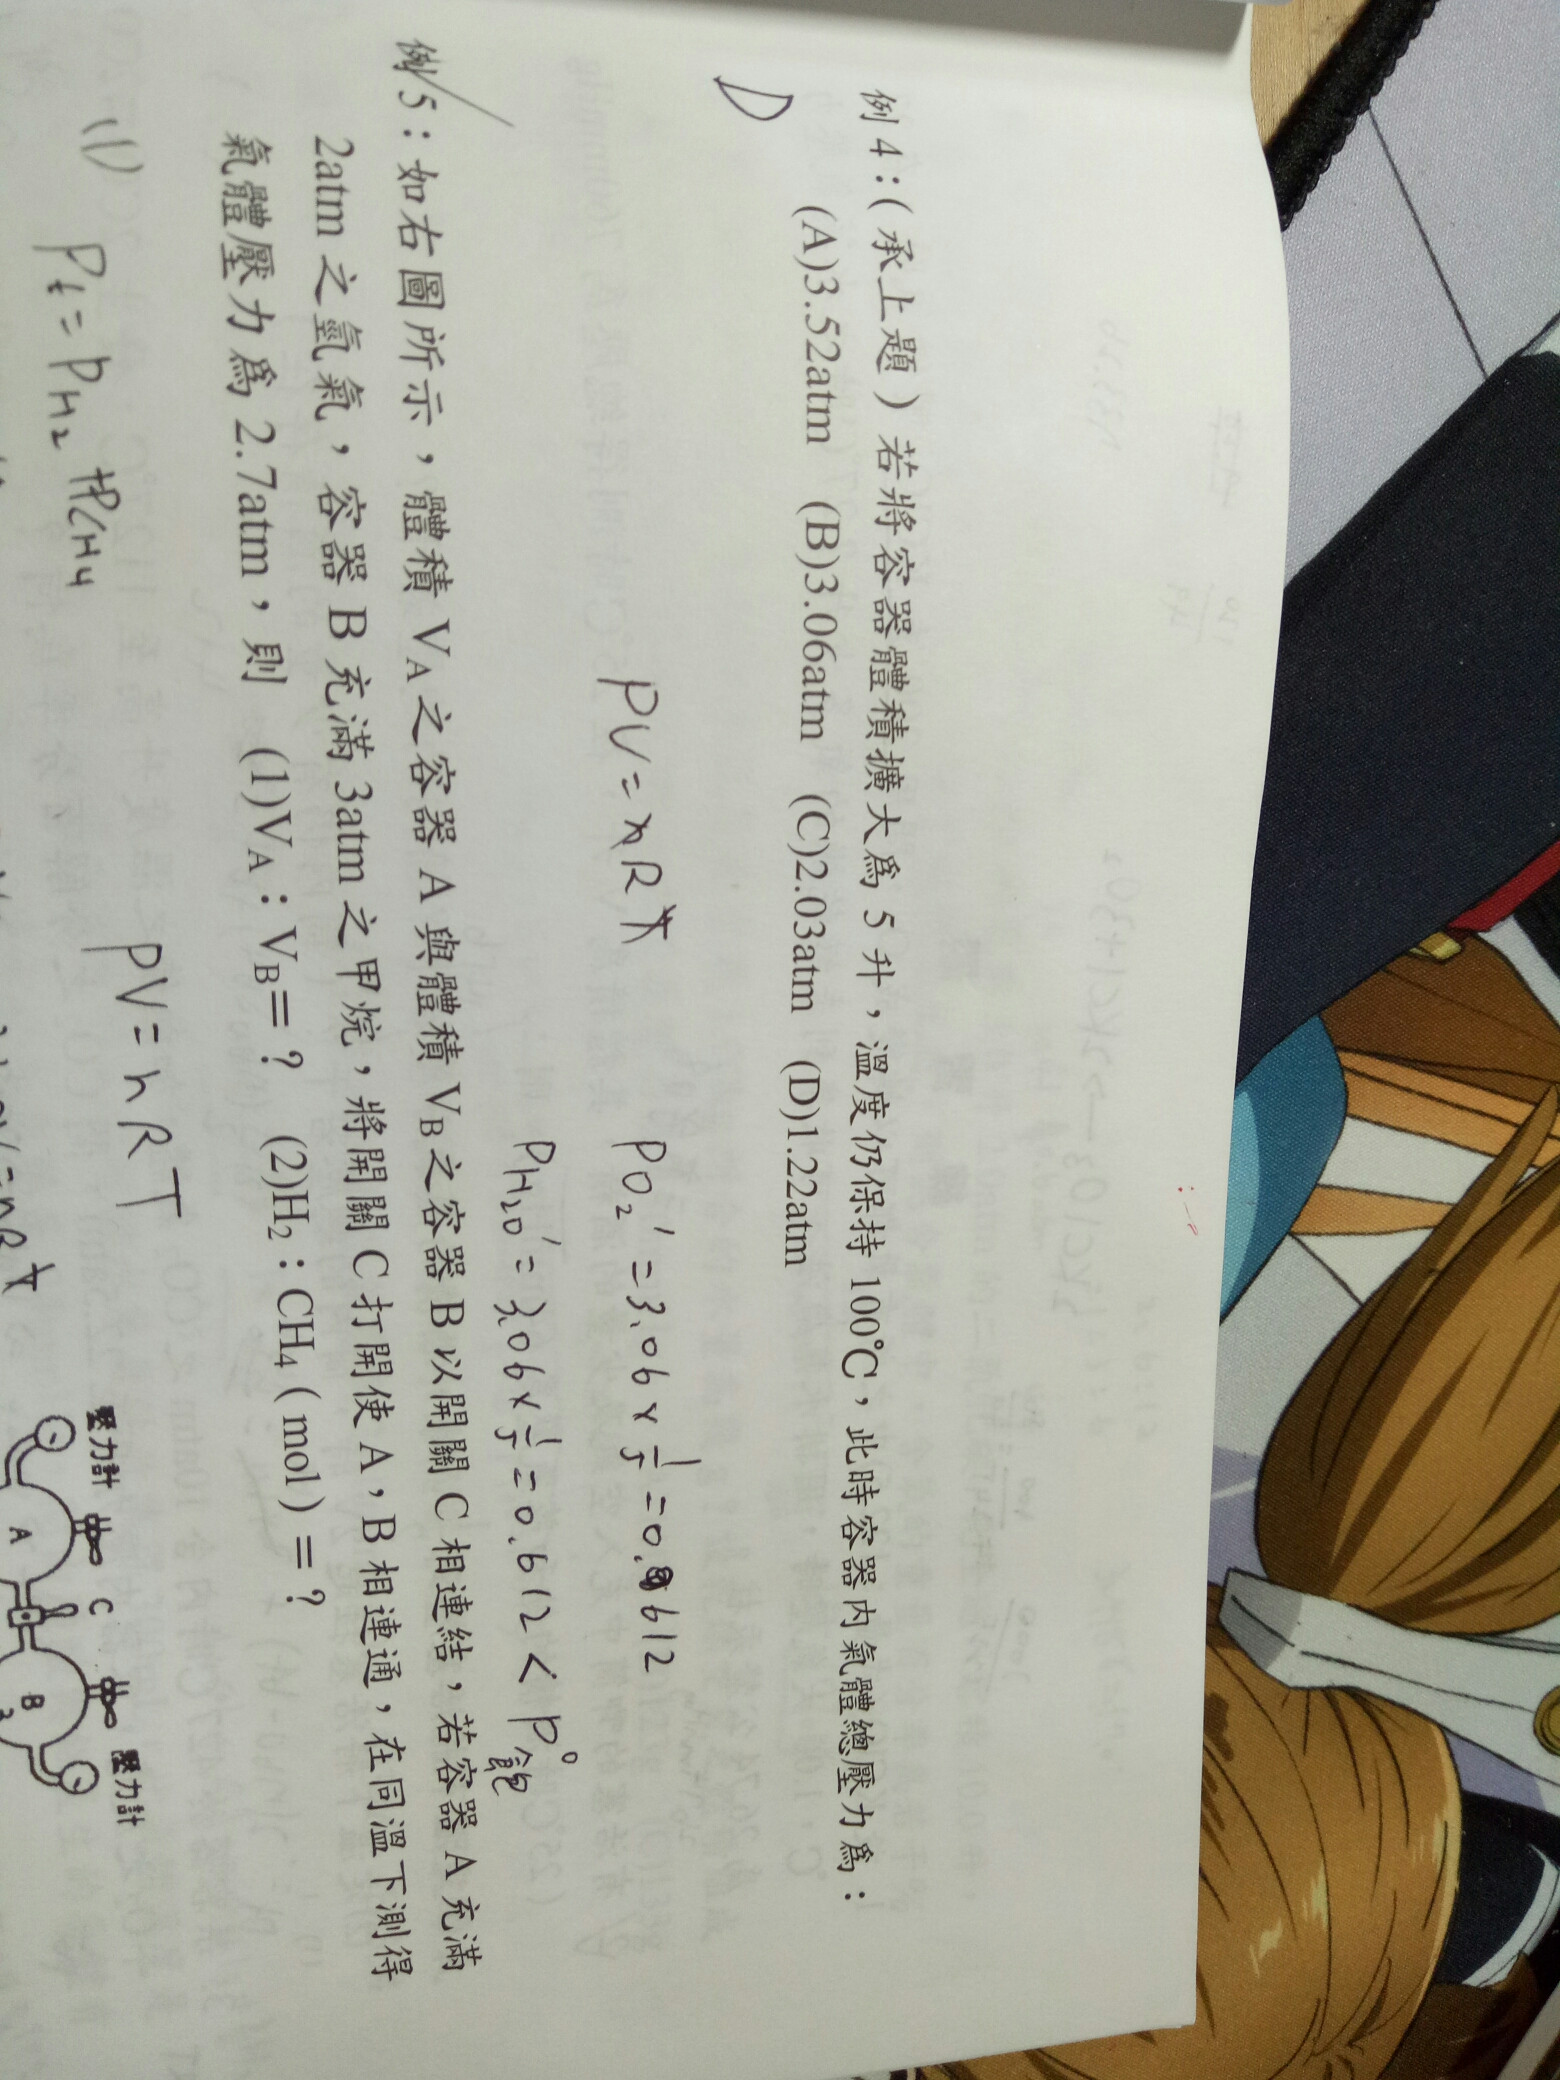 例4：(承上題) 若將容器體積擴大為 5 升，溫度仍保持 100℃，此時容器內氣體總壓力為：
(A)3.52atm (B)3.06atm (C)2.03atm (D)1.22atm
D
PV=nRT
PO₂'=3.06×1/5=0.612
PH₂O'=3.06×1/5=0.612<P°飽
例5：如右圖所示，體積 VA 之容器 A 與體積 VB 之容器 B 以開關 C 相連結，若容器 A 充滿
2atm 之氫氣，容器 B 充滿 3atm 之甲烷，將開關 C 打開使 A，B 相連通，在同溫下測得
氣體壓力為 2.7atm，則 (1)VA：VB＝？ (2)H₂：CH₄(mol)＝？
(1)
Pt=PH₂+PCH₄
PV=nRT
壓力計
C
壓力計
A
B